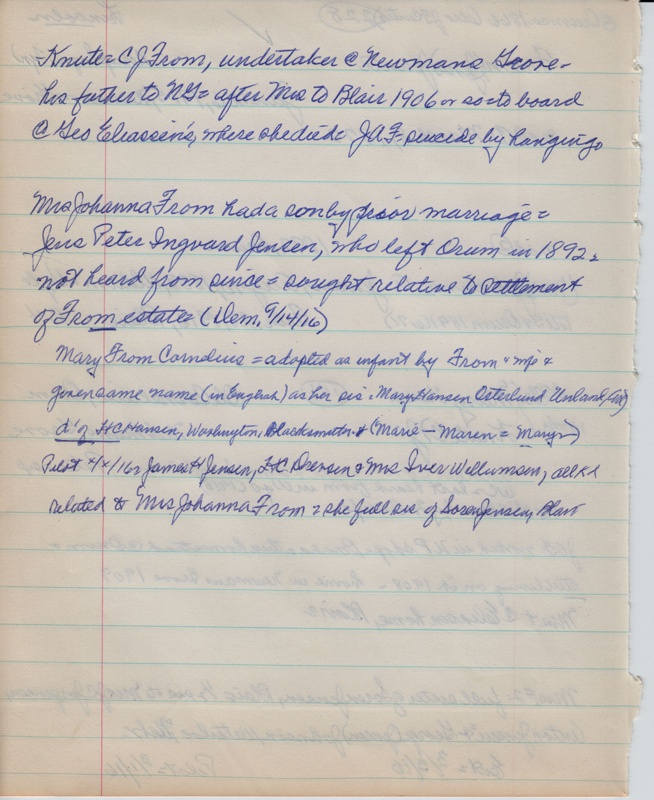 -Knute = C J From, undertaker @ Newmans Grove -
his father to NG = after Mrs to Blair 1906 or so = to board
@ Geo Eliassen's, where she died = JAF = suicide by hanging
Mrs Johanna From had a son by prior marriage =
Jens Peter Ingvard Jensen, who left Orum in 1892 =
not heard from since = sought relative to settlement
of From estate = (Dem, 9/14/16)
Mary From Cornelius = adopted as infant by From +
given same name (in English) as her sis. Mary Hansen Osterlund Unland,
d' of HC Hansen, Washington, Blacksmith + (Marie - Maren = Mary)
Pilot James H Jensen, HC Drensen + Mrs Iver Willumsen, all
related to Mrs Johanna From = she full sis of Soren Jensen, Blair